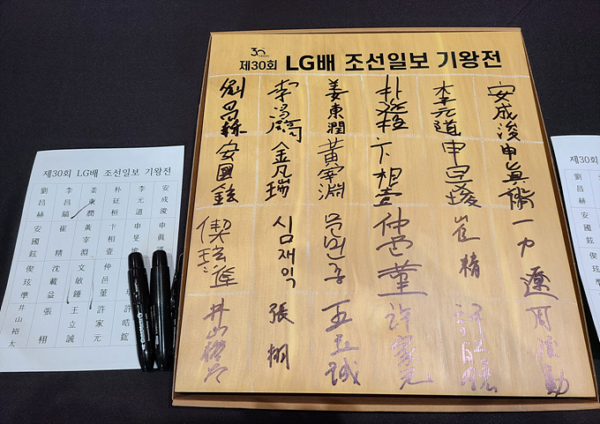 30
제30회 LG배 조선일보 기왕전
劉昌赫
李昌鎬
姜東潤
朴廷桓
李元道
安成浚
安國鉉
金凡瑞
黃宰淵
卞相壹
申旻埈
申眞諝
偰玹準
심재익
문민종
仲邑菫
崔精
一力遼
井山裕太
張栩
王立誠
許家元
許皓鋐
제30회 LG배 조선일보 기왕전
劉昌赫
李昌鎬
姜東潤
朴廷桓
李元道
安成浚
安國鉉
崔精
黃宰淵
卞相壹
申旻埈
申眞
偰玹準
沈載益
文敏鍾
仲邑菫
井山裕太
張栩
王立誠
許家元
許皓鋐
제30회